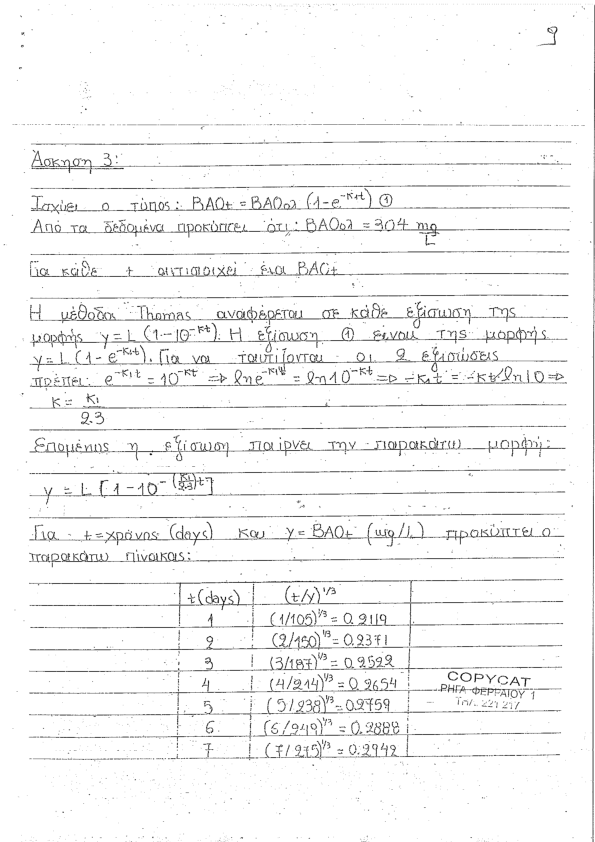 9
Άσκηση 3:
Ισχύει ο τύπος: BAOt = BAOολ (1-e^-κ₁t) ①
Από τα δεδομένα προκύπτει ότι: BAOολ = 304 mg/L
Για κάθε t αντιστοιχεί ένα BAOt
Η μέθοδος Thomas αναφέρεται σε κάθε εξίσωση της
μορφής y = L (1-10^-κt). Η εξίσωση ① είναι της μορφής
y = L (1-e^-κ₁t). Για να ταυτίζονται οι 2 εξισώσεις
πρέπει: e^-κ₁t = 10^-κt => lne^-κ₁t = ln10^-κt => -κ₁t = -κt ln10 =>
κ = κ₁/2.3
Επομένως η εξίσωση παίρνει την παρακάτω μορφή:
y = L [1-10^-(κ₁/2.3)t]
Για t = χρόνος (days) και y = BAOt (mg/L) προκύπτει ο
παρακάτω πίνακας:
t (days) (t/y)^1/3
1 (1/105)^1/3 = 0.2119
2 (2/150)^1/3 = 0.2371
3 (3/187)^1/3 = 0.2522
4 (4/214)^1/3 = 0.2654
5 (5/238)^1/3 = 0.2759
6 (6/249)^1/3 = 0.2888
7 (7/275)^1/3 = 0.2942
COPYCAT
ΡΗΓΑ ΦΕΡΡΑΙΟΥ 1